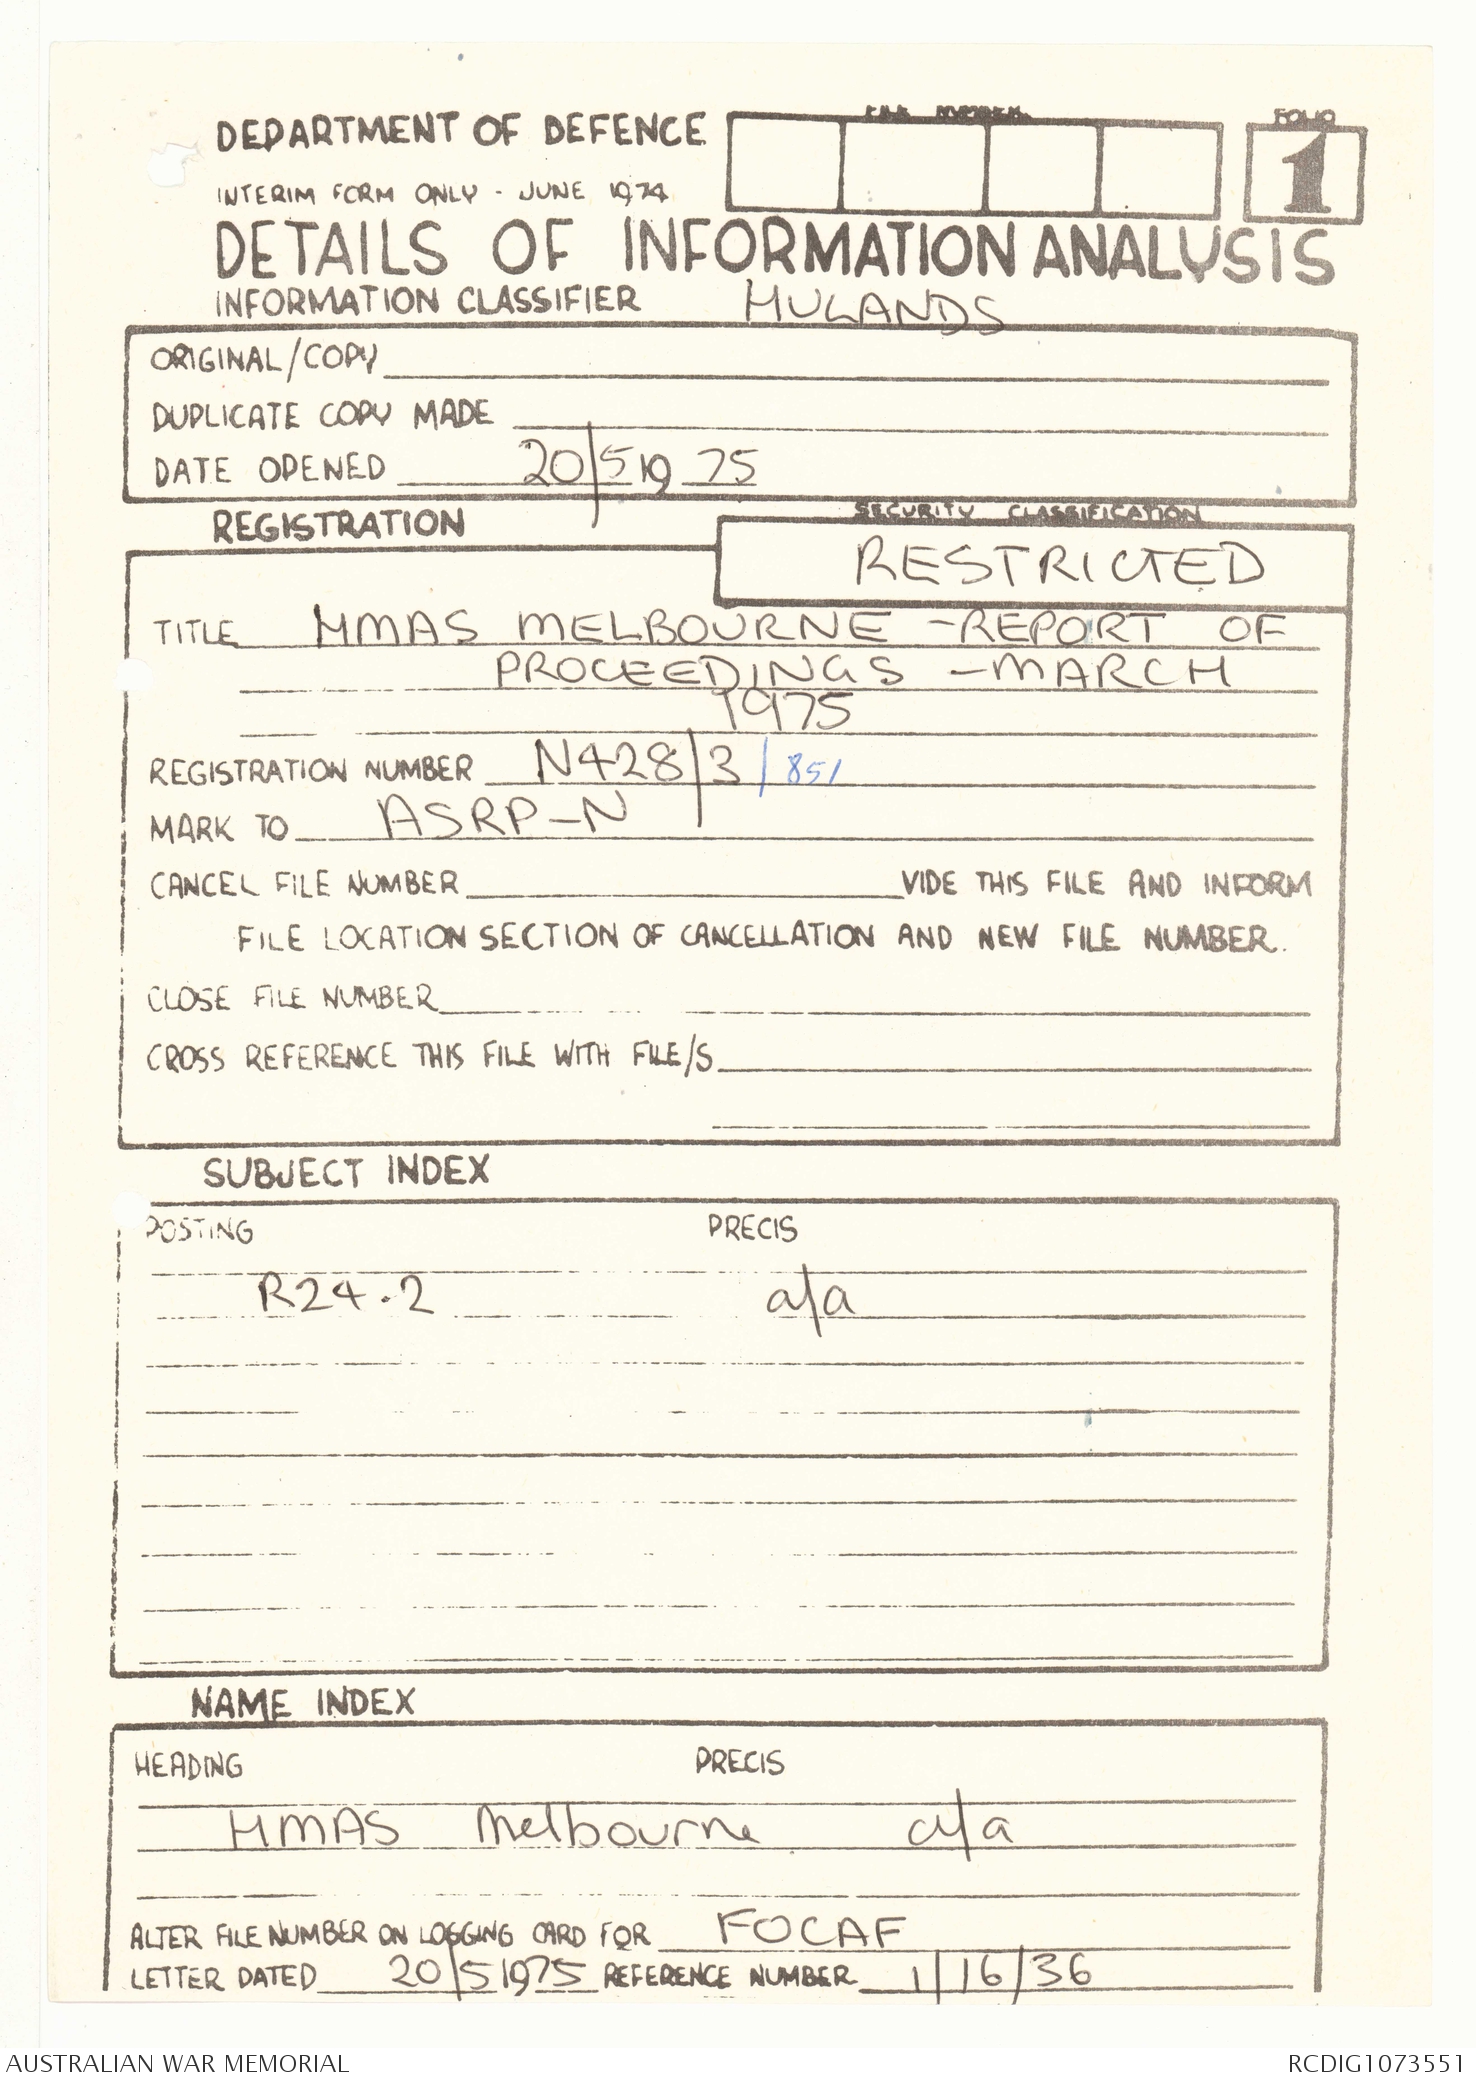 DEPARTMENT OF DEFENCE
FILE NUMBER
FOLIO
1
INTERIM FORM ONLY - JUNE 1974
DETAILS OF INFORMATION ANALYSIS
INFORMATION CLASSIFIER HULANDS
ORIGINAL/COPY
DUPLICATE COPY MADE
DATE OPENED 20/5 19 75
REGISTRATION
SECURITY CLASSIFICATION
RESTRICTED
TITLE HMAS MELBOURNE - REPORT OF
PROCEEDINGS - MARCH
1975
REGISTRATION NUMBER N428/3/851
MARK TO ASRP-N
CANCEL FILE NUMBER VIDE THIS FILE AND INFORM
FILE LOCATION SECTION OF CANCELLATION AND NEW FILE NUMBER.
CLOSE FILE NUMBER
CROSS REFERENCE THIS FILE WITH FILE/S
SUBJECT INDEX
POSTING PRECIS
R24.2 a/a
NAME INDEX
HEADING PRECIS
HMAS Melbourne a/a
ALTER FILE NUMBER ON LOGGING CARD FOR FOCAF
LETTER DATED 20/5 1975 REFERENCE NUMBER 1/16/36
AUSTRALIAN WAR MEMORIAL
RCDIG1073551